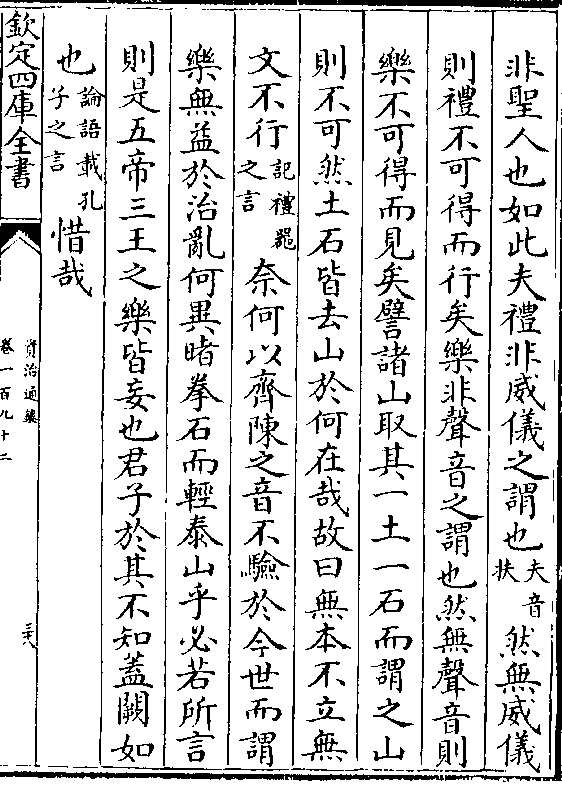 非聖人也如此夫禮非威儀之謂也夫音扶然無威儀
則禮不可得而行矣樂非聲音之謂也然無聲音則
樂不可得而見矣譬諸山取其一土一石而謂之山
則不可然土石皆去山於何在哉故曰無本不立無
文不行記禮器之言奈何以齊陳之音不驗於今世而謂
樂無益於治亂何異睹拳石而輕泰山乎必若所言
則是五帝三王之樂皆妄也君子於其不知蓋闕如
也論語載孔子之言惜哉
欽定四庫全書
資治通鑑
卷一百九十二